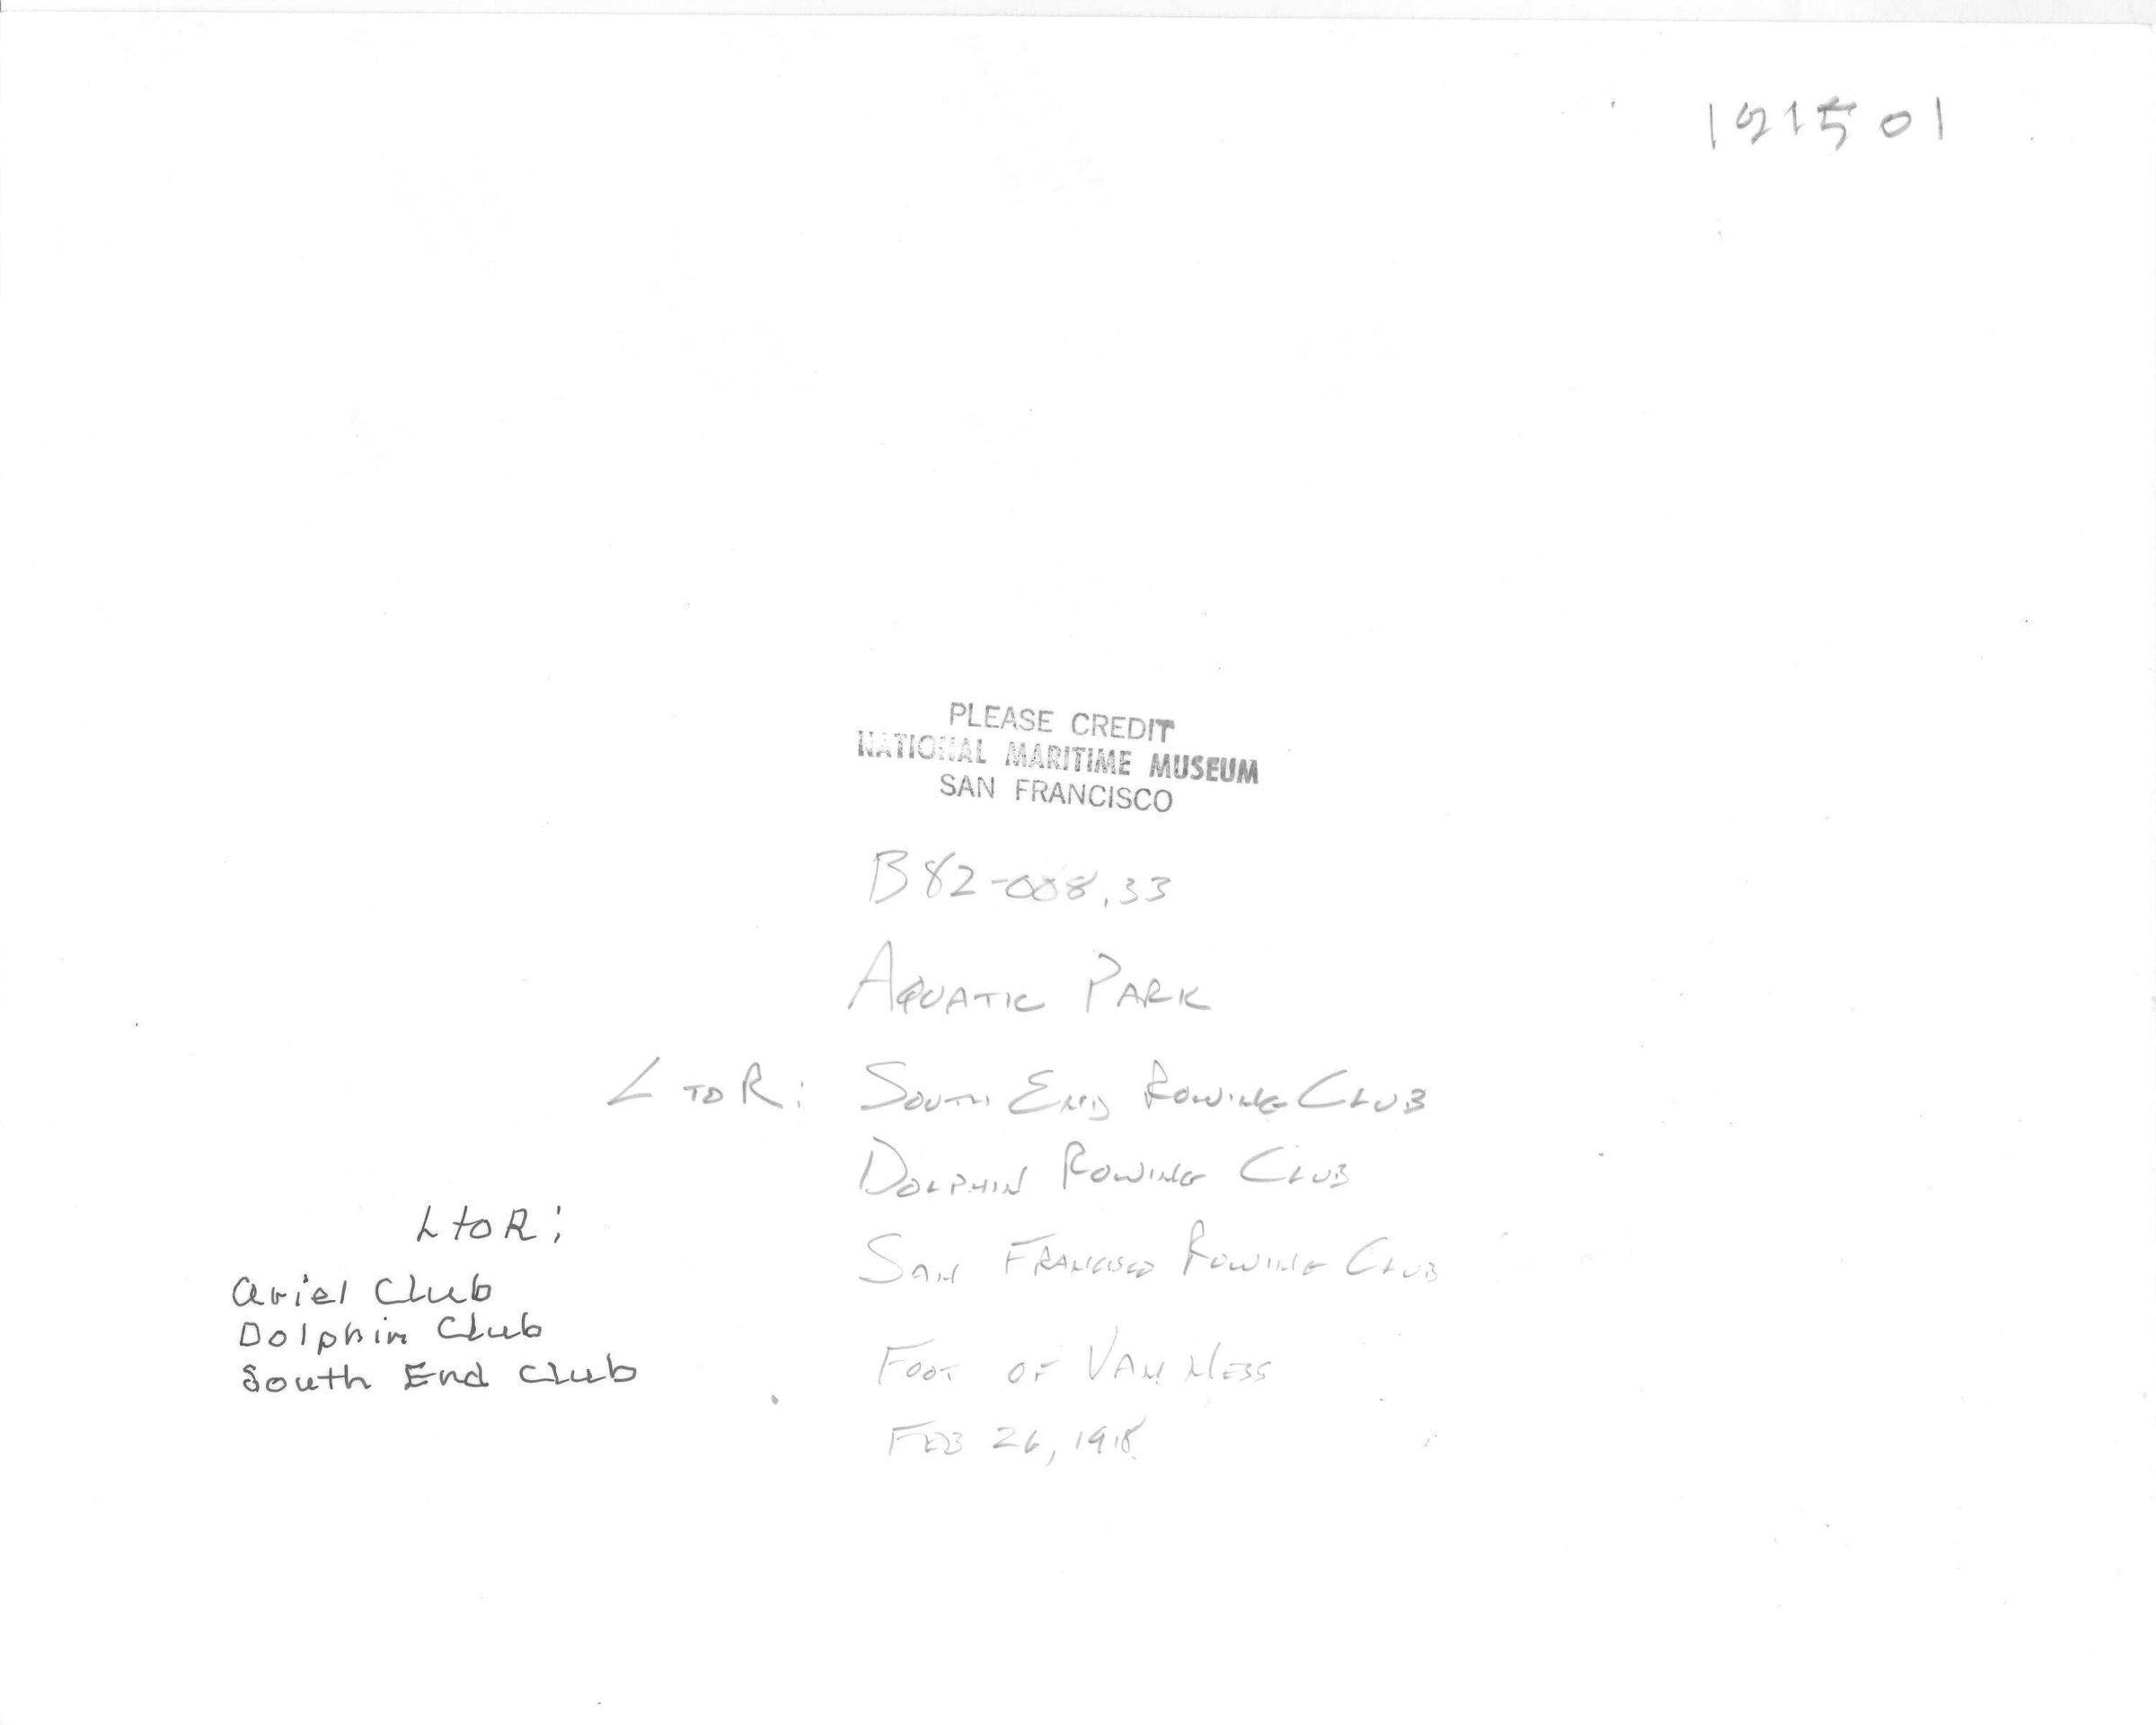 191501
PLEASE CREDIT
NATIONAL MARITIME MUSEUM
SAN FRANCISCO
B82-008.33
AQUATIC PARK
L TO R: SOUTH END ROWING CLUB
DOLPHIN ROWING CLUB
SAN FRANCISCO ROWING CLUB
FOOT OF VAN NESS
FEB 26, 1918
L to R:
Ariel Club
Dolphin Club
South End Club